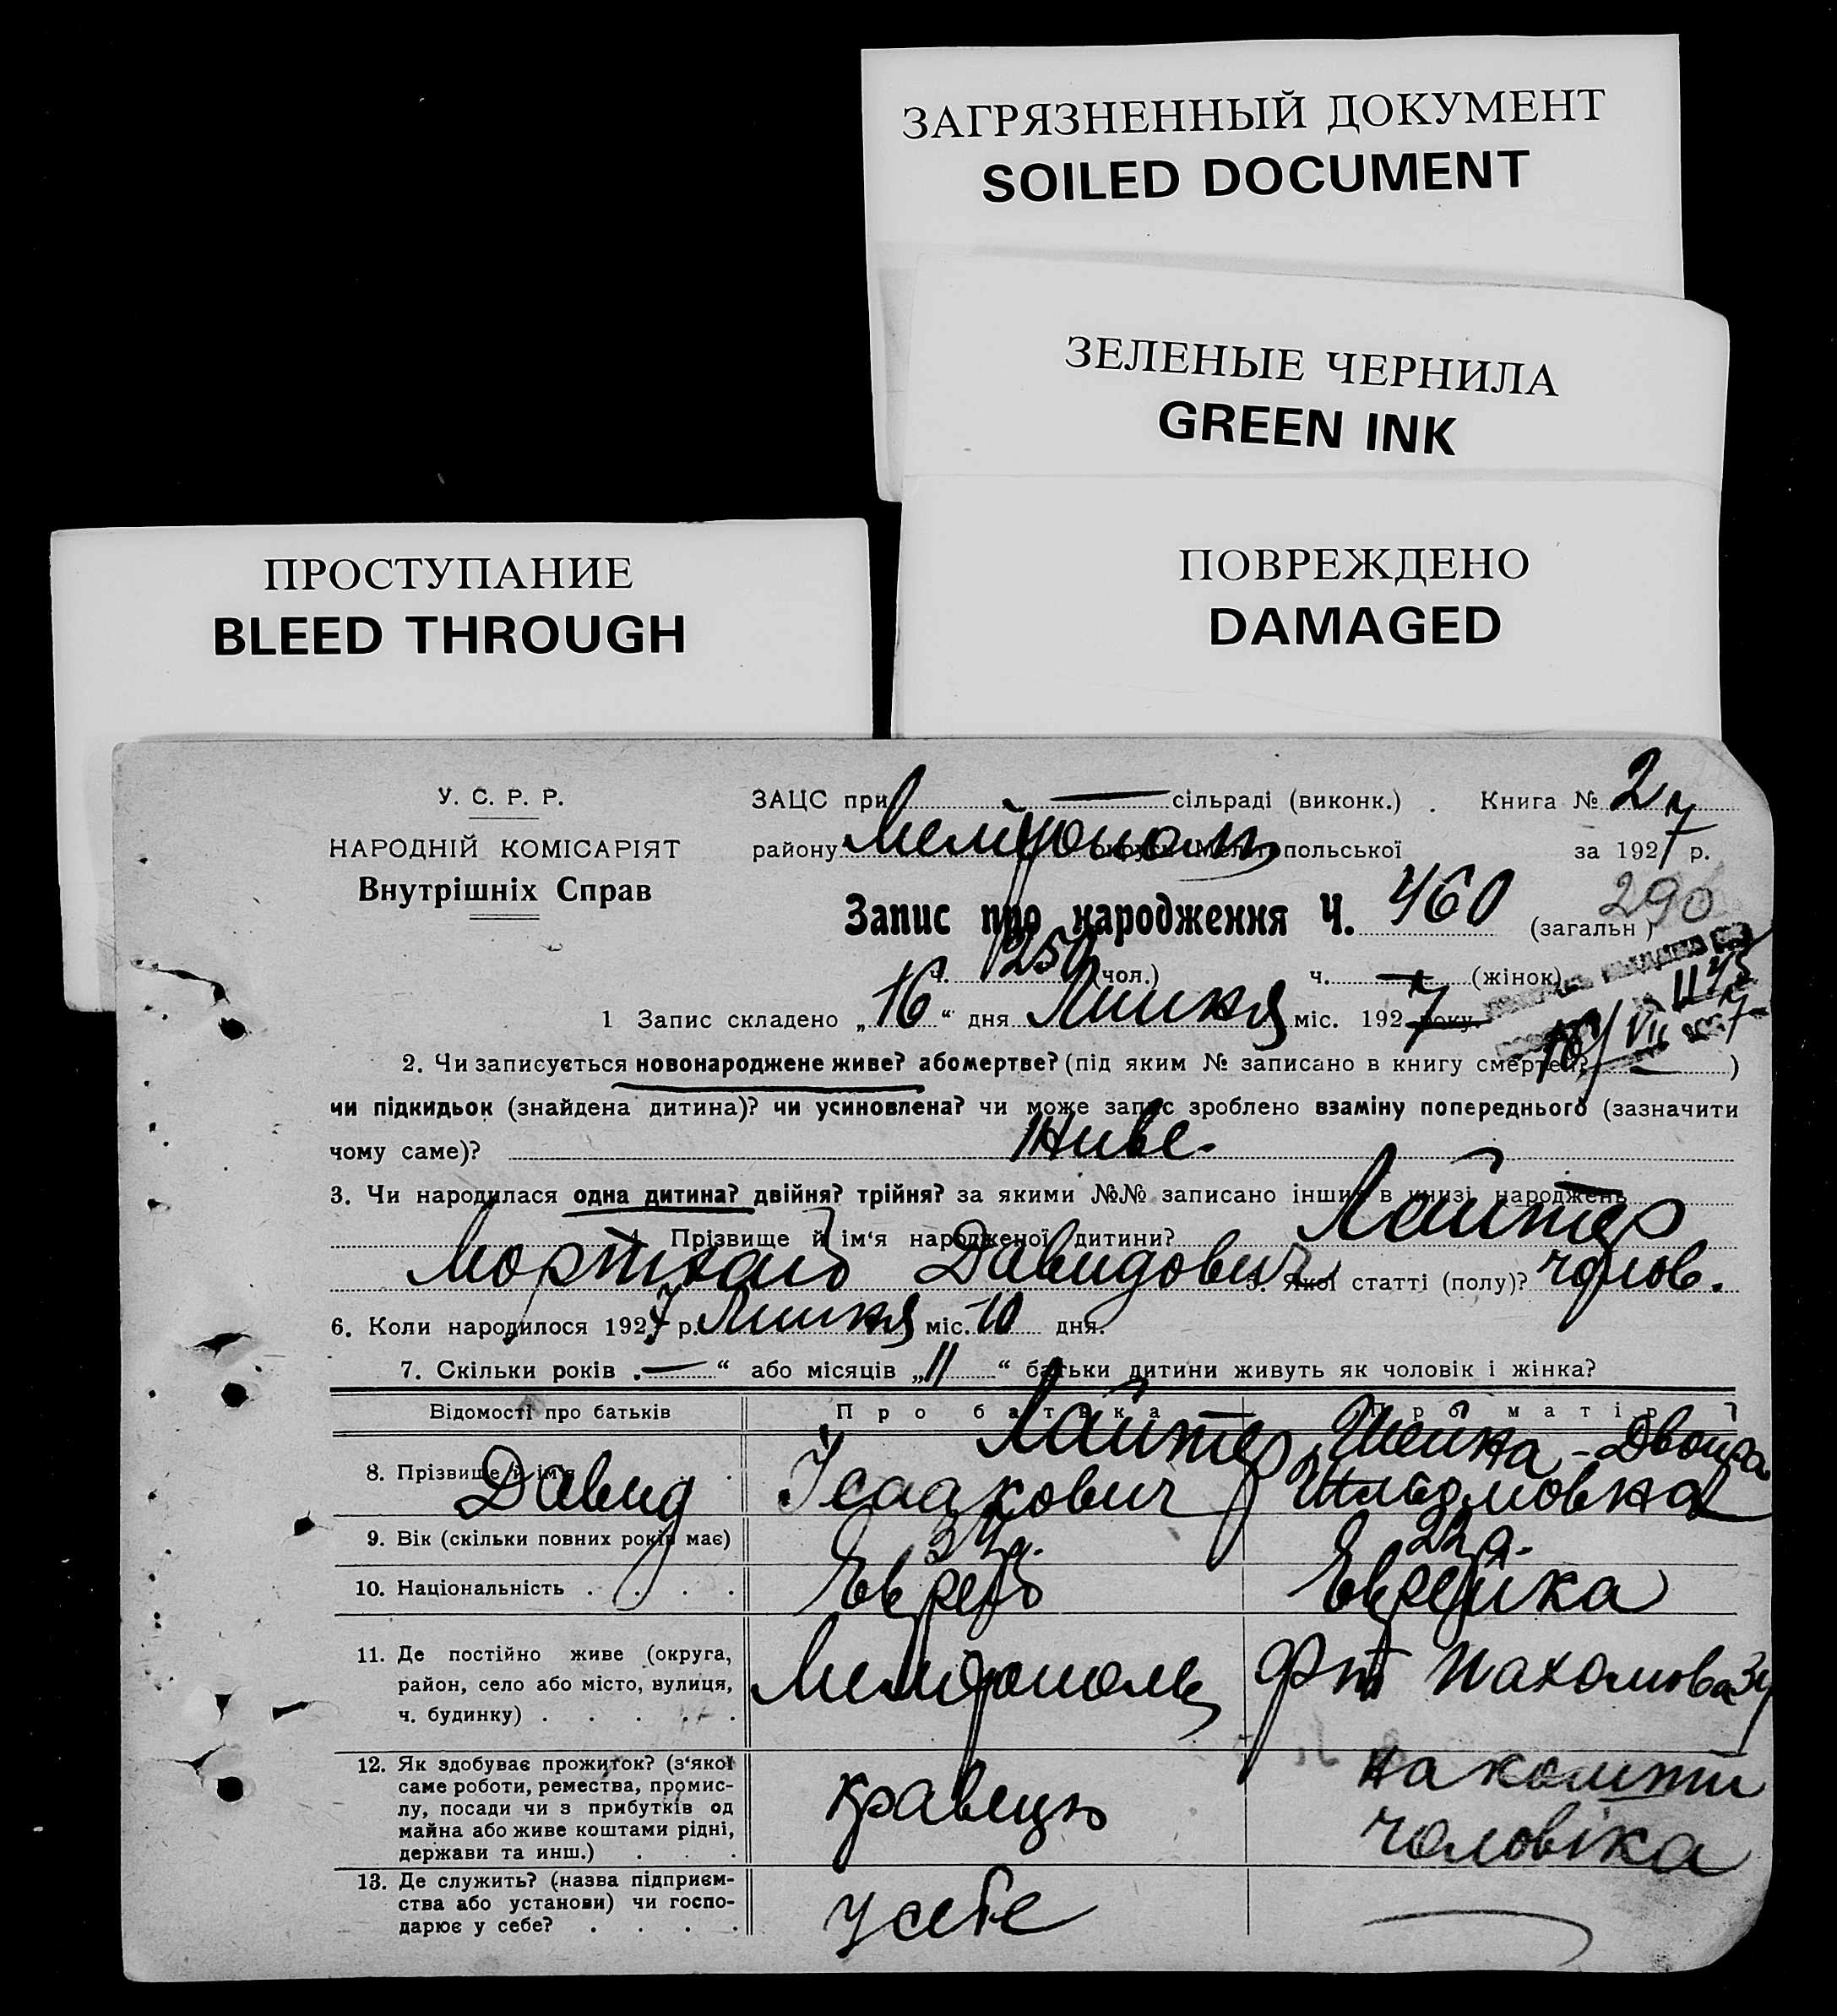 ЗАГРЯЗНЕННЫЙ ДОКУМЕНТ
SOILED DOCUMENT
ЗЕЛЕНЫЕ ЧЕРНИЛА
GREEN INK
ПОВРЕЖДЕНО
DAMAGED
ПРОСТУПАНИЕ
BLEED THROUGH
У. С. Р. Р.
НАРОДНІЙ КОМІСАРІЯТ
Внутрішніх Справ
ЗАЦС при — сільраді (виконк.) . Книга № 2
району Мелітополь округи Мелітопольської за 1927 р.
Запис про народження Ч. 460 (загальн)
290
ч. 250 (чол.) ч. — (жінок)
1 Запис складено „16“ дня Липня міс. 1927 року.
2. Чи записується новонароджене живе? або мертве? (під яким № записано в книгу смертей? — )
чи підкидьок (знайдена дитина)? чи усиновлена? чи може запис зроблено взаміну попереднього (зазначити
чому саме)? Живе.
3. Чи народилася одна дитина? двійня? трійня? за якими №№ записано інших в книзі народжень
4. Прізвище й ім‘я народженої дитини? Лайтер
Мортхай Давидович 5. Якої статті (полу)? чолов.
6. Коли народилося 1927 р. Липня міс. 10 дня.
7. Скільки років „—“ або місяців „11“ батьки дитини живуть як чоловік і жінка?
Відомості про батьків Про батька Про матір
8. Прізвище й ім‘я . Лайтер Шейка-Двойра
Давид Ісаакович
9. Вік (скільки повних років має) 22 р.
10. Національність . . . . Еврей Еврейка
11. Де постійно живе (округа,
район, село або місто, вулиця,
ч. будинку) . . . . .
Мелітополь Пахомова 34
12. Як здобуває прожиток? (з‘якої
саме роботи, ремества, промис-
лу, посади чи з прибутків од
майна або живе коштами рідні,
держави та инш.) . . .
кравець
на кошти
чоловіка
13. Де служить? (назва підприєм-
ства або установи) чи госпо-
дарює у себе? . . . .
у себе